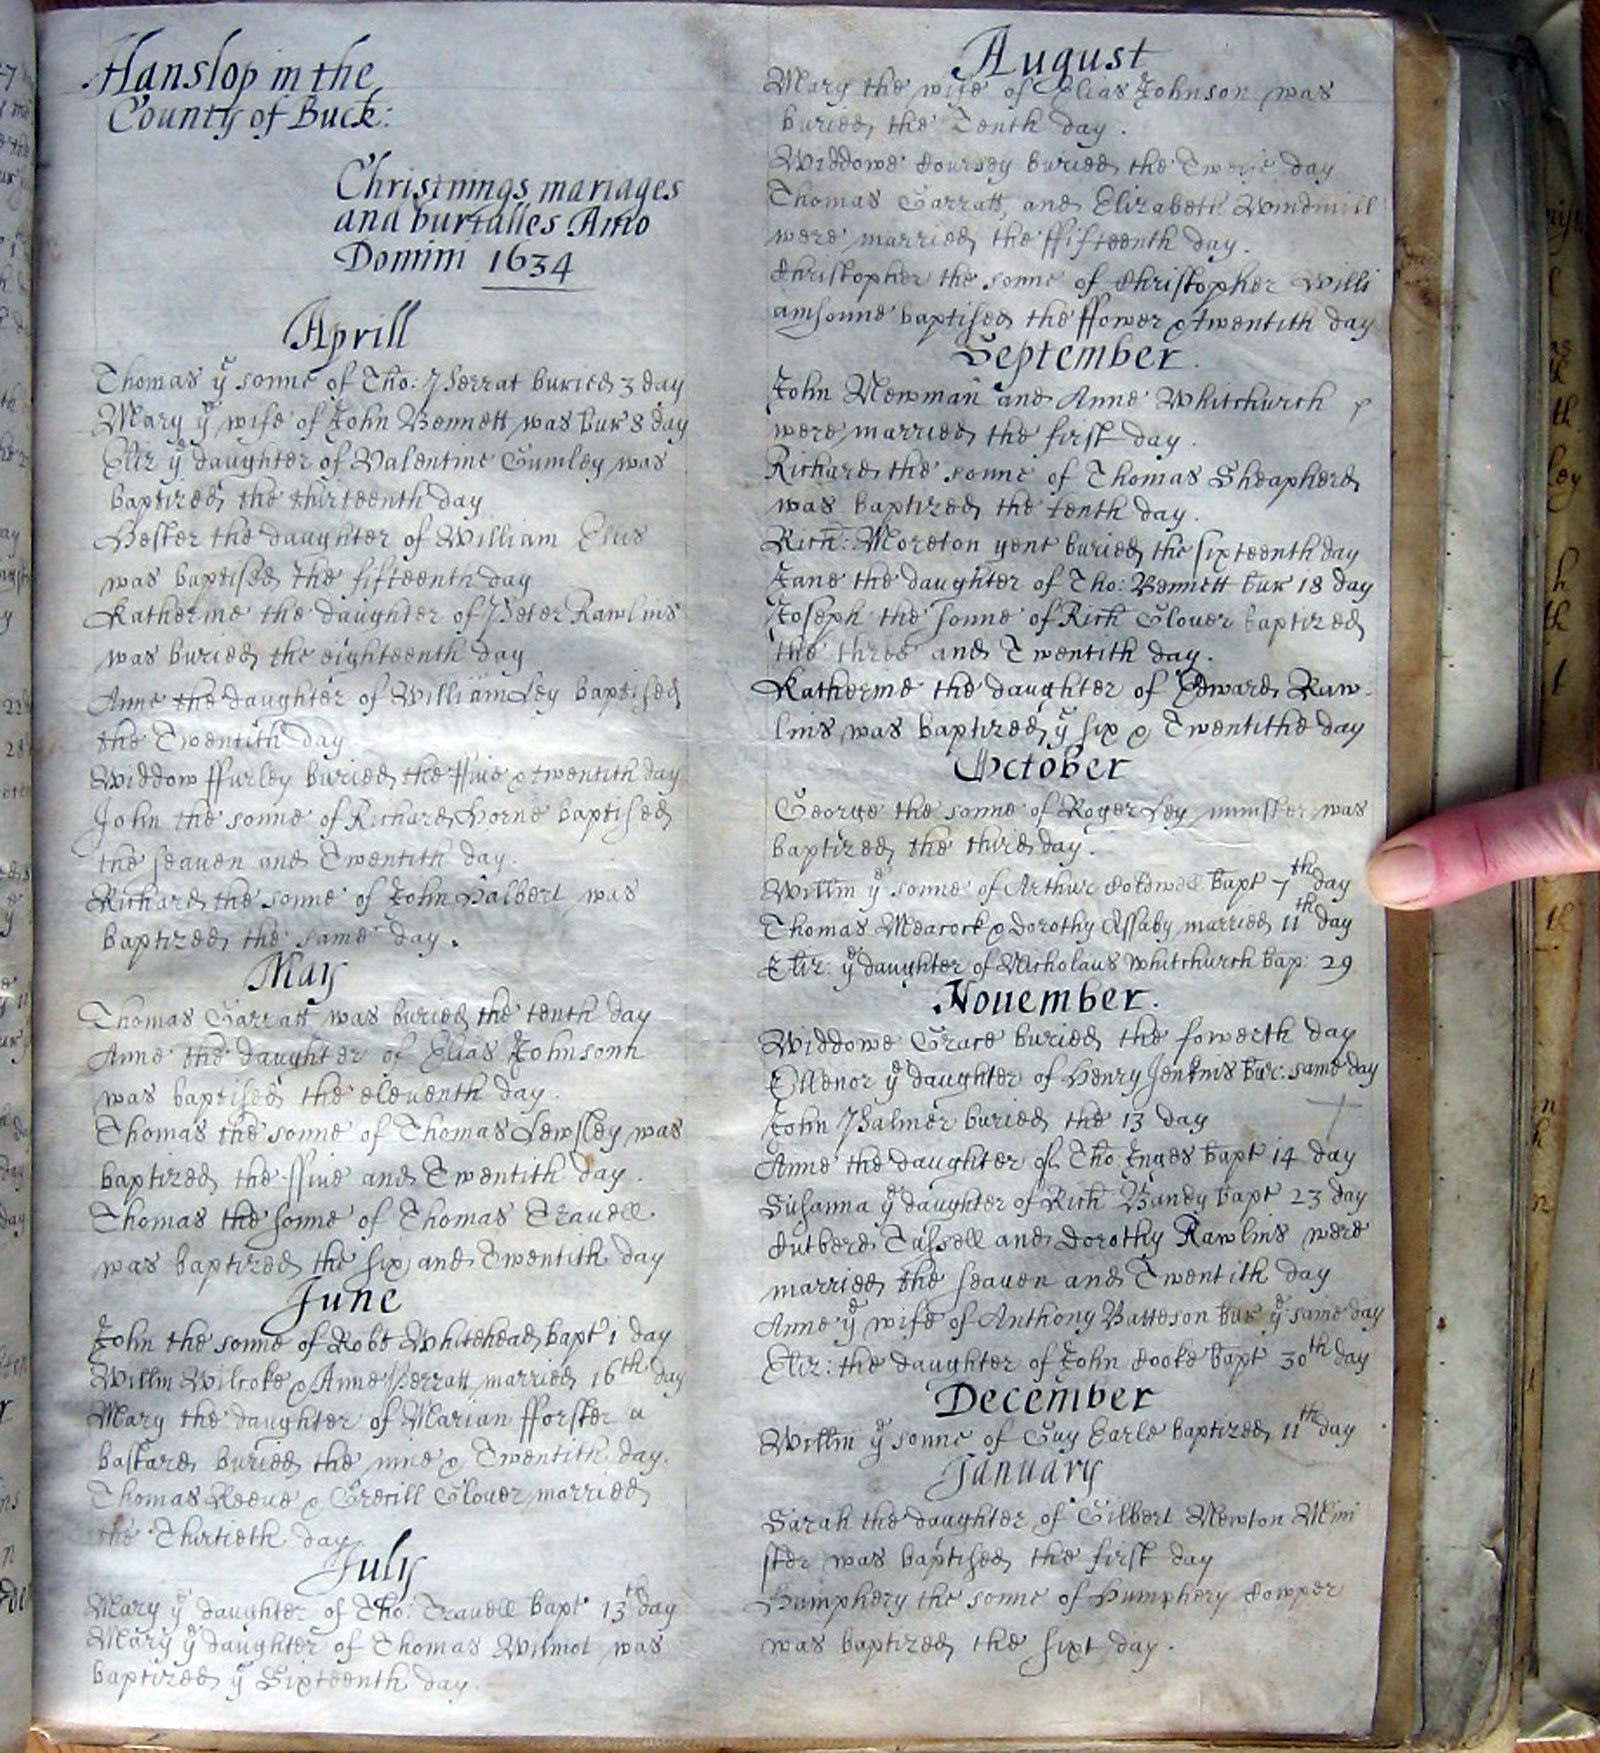 Hanslop in the
County of Buck:
Christnings mariages
and burialles Anno
Domini 1634
Aprill
Thomas yͤ sonne of Tho: Perrat buried 3 day
Mary yͤ wife of John Bennett was bur 8 day
Eliz yͤ daughter of Valentine Gumley was
baptized the thirteenth day
Hester the daughter of William Ellis
was baptised the fifteenth day
Katherine the daughter of Peter Rawlins
was buried the eighteenth day
Anne the daughter of William Ley baptised
the Twentith day
Widdow ffurley buried the ffiue & twentith day
John the sonne of Richard Horne baptised
the seauen and Twentith day.
Richard the sonne of John Halbert was
baptized the same day.
May
Thomas Garratt was buried the tenth day
Anne the daughter of Elias Johnsonn
was baptised the eleuenth day.
Thomas the sonne of Thomas Lewsley was
baptized the ffiue and Twentith day.
Thomas the sonne of Thomas Trauell
was baptized the six and Twentith day
June
John the sonne of Robt Whitehead bapt 1 day
Willm Wilcoke & Anne Perratt married 16th day
Mary the daughter of Marian fforster a
bastard buried the nine & Twentith day.
Thomas Reeue & Grecill Glouer married
the Thirtieth day.
July
Mary yͤ daughter of Tho: Trauell bapt 13th day
Mary yͤ daughter of Thomas Wilmot was
baptized yͤ Sixteenth day.
August
Mary the wife of Elias Johnson was
buried the Tenth day.
Widdowe Coursey buried the day
Thomas Garratt and Elizabeth Windmill
were married the ffifteenth day.
Christopher the sonne of Christopher Willi
amsonne baptised the ffower & twentith day
September.
John Newman and Anne Whitchurch
were married the first day.
Richard the sonne of Thomas Sheapherd
was baptized the tenth day.
Rich: Moreton gent buried the sixteenth day
Jane the daughter of Tho: Bennett bur 18 day
Joseph the sonne of Rich Glouer baptized
the three and Twentith day.
Katherine the daughter of Edward Raw-
lins was baptized yͤ six & Twentithe day
October
George the sonne of Roger Ley minister was
baptized the third day.
Willm yͤ sonne of Arthur Coldwell bapt 7th day
Thomas Meacock & Dorothy Assaby married 11th day
Eliz: yͤ daughter of Nicholaus Whitchurch bap: 29
November.
Widdowe Grace buried the fowerth day
Ellenor yͤ daughter of Henry Jenkins bur: same day
John Palmer buried the 13 day
Anne the daughter of Tho Inges bapt 14 day
Susanna yͤ daughter of Rich Bandy bapt 23 day
Cutberd Tassell and Dorothy Rawlins were
married the seauen and Twentith day
Anne yͤ wife of Anthony Batteson bur yͤ same day
Eliz: the daughter of John Cooke bapt 30th day
December
Willm yͤ sonne of Guy Earle baptized 11th day
January
Sarah the daughter of Gilbert Newton Mini
ster was baptised the first day
Humphery the sonne of Humphery Cowper
was baptized the sixt day.